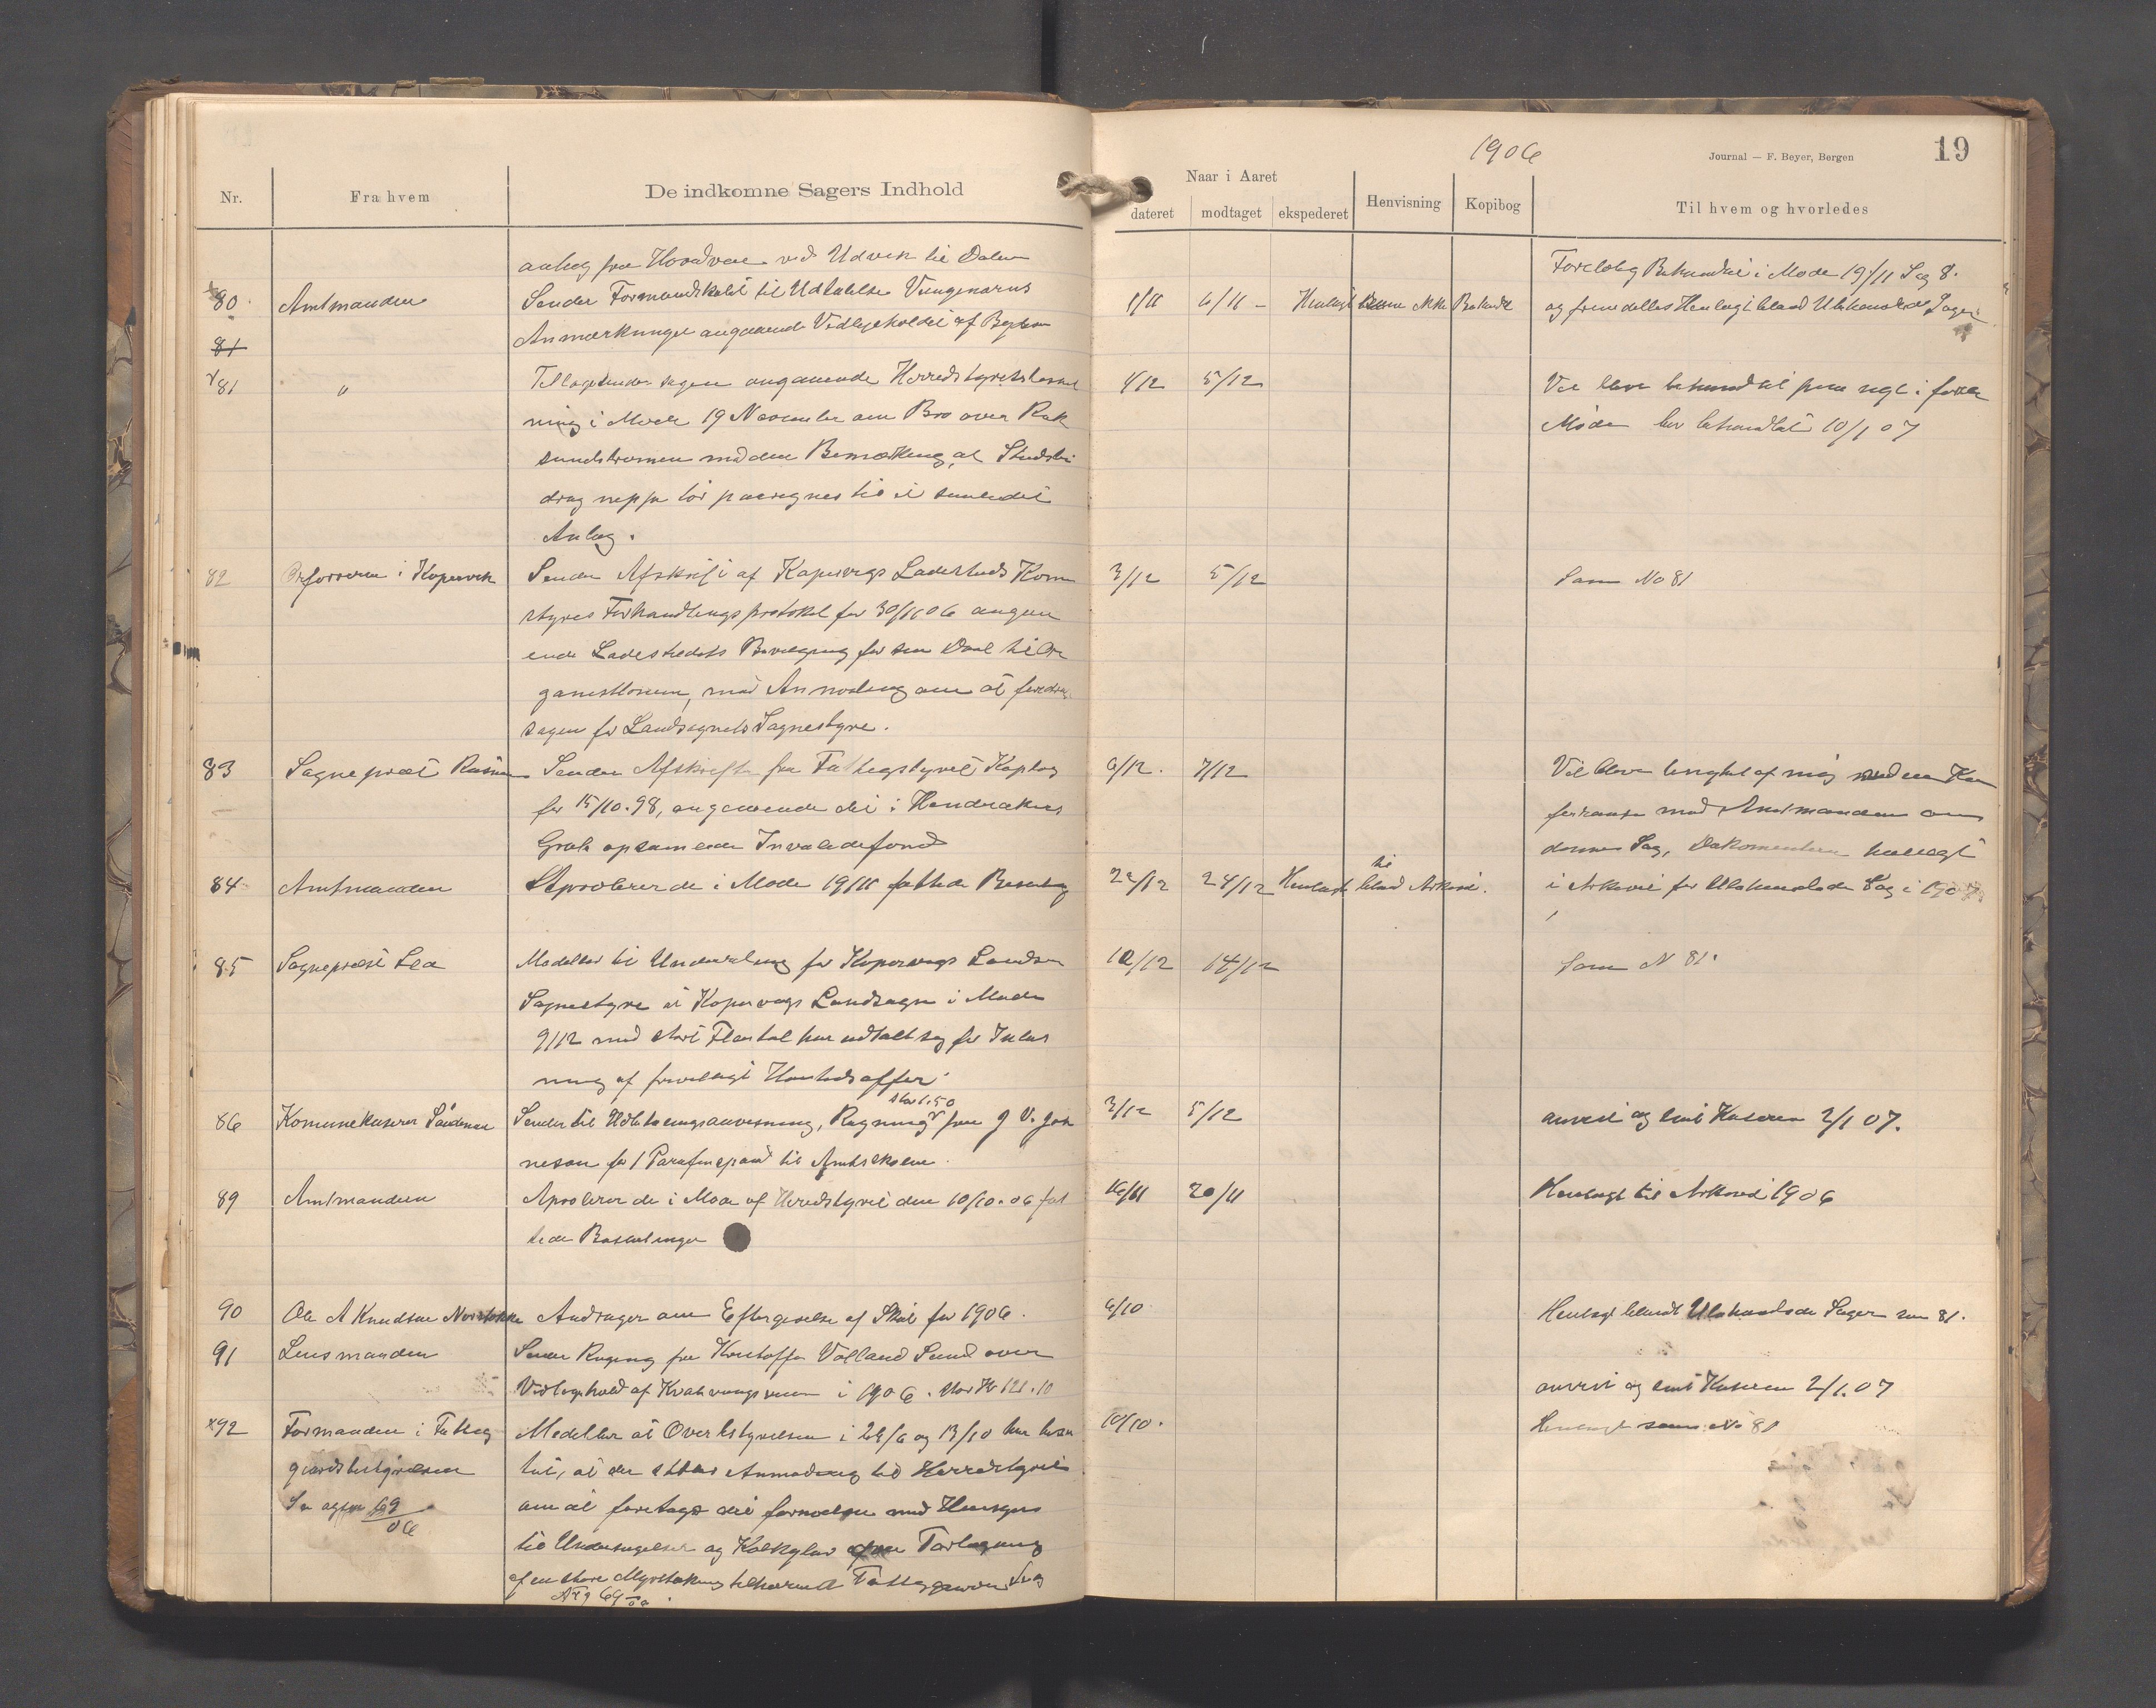 1906
Journal — F. Beyer, Bergen
19
Nr.
Fra hvem
De indkomne Sagers Indhold
Naar i Aaret
dateret
modtaget
ekspederet
Henvisning
Kopibog
Til hvem og hvorledes
anlæg fra Hovedveie ved Udvik til Dalen
Foreløbig Behandlet i Møde 19/11 Sag 8.
80
Amtmanden
Sender Formandskabet til Udtalelse
1/11
6/11
Henlagt ikke Behandl
og fremdelles Henlagt bland Ubehandlede Sager
81
Anmærkninger angaaende Vedligeholdet af
81
"
sagen angaaende Herredstyretsbeslut
4/12
5/12
Vil blive behandlet i første
ning i Møde 19 November om Bro over Rak
Møde blev behandlet 10/1 07
sundstrømen med den Bemærkning, at Stadsbi
drag neppe tør paaregnes til et saadant
Anlæg.
82
i Kopervik
Sender Afskrift af Kopervigs Ladesteds Kom
3/12
5/12
Som No 81
styres Forhandlings protokol for 30/11 06 angaa
ende Ladestedets Bevilgning for sin Deel til Or
ganistlønnen, med Anmodning om at
sagen for Landsognets Sognestyre.
83
Sogneprest
Sender Afskrift fra Fattigstyrets Kopibog
6/12.
7/12
Vil blive af mig
for 15/10. 98, angaaende det i
med Amtmanden om
Grab opsamlede Invalidefond
denne Sag, Dokumenterne henlagt
84
Amtmanden
Aprobere de i Møde 19/11 fattede Beslutning
22/12
24/12
Henlagt til bland Arkivet.
i Arkivet for Ubehandlede Sag i 1907
85
Sogneprest Lea
Meddeler til Underretning for Kopervigs Landsogn
12/12
14/12
Som N 81.
Sognestyre at Kopervigs Landsogn i Møde
9/12 med stort Flertal har udtalt sig for Indløs
ning af frivilligt Høitidsoffer.
stor 1.50
86
Komunekaserer
Sender til Udbetalingsanvisning, Regning fra J V. Joh
3/12
5/12
anvist og sent Kasseren 2/1 07.
nesen for 1 Parafinspand til Amtskolen.
89
Amtmanden
Aproberer de i Møde af Heredstyret den 10/10. 06 fat
16/11
20/11
Henlagt til Arkivet 1906
tede Beslutninger
90
Ole A Knudsen
Andrager om Eftergivelse af Skat for 1906.
6/10
Henlagt blandt Ubehandlede Sager som 81.
91
Lensmanden
Sender Regning fra Kristoffer Valland Sund over
Vedligehold af i 1906. Stor Kr 121.10
anvist og sent Kasseren 2/1. 07
92
Formanden i Fattig
Meddeler at Overbestyrelsen i 28/6 og 13/10 har beslut
10/10.
Henlagt som No 81
gaardsbestyrelsen
tet, at der stilles Anmodning til Herredstyret
Se ogsaa 69/06
om at foretage det fornødne med Hensyn
til Undersøgelser og Kalkyler Tørlægning
af en større Myrstrækning
69